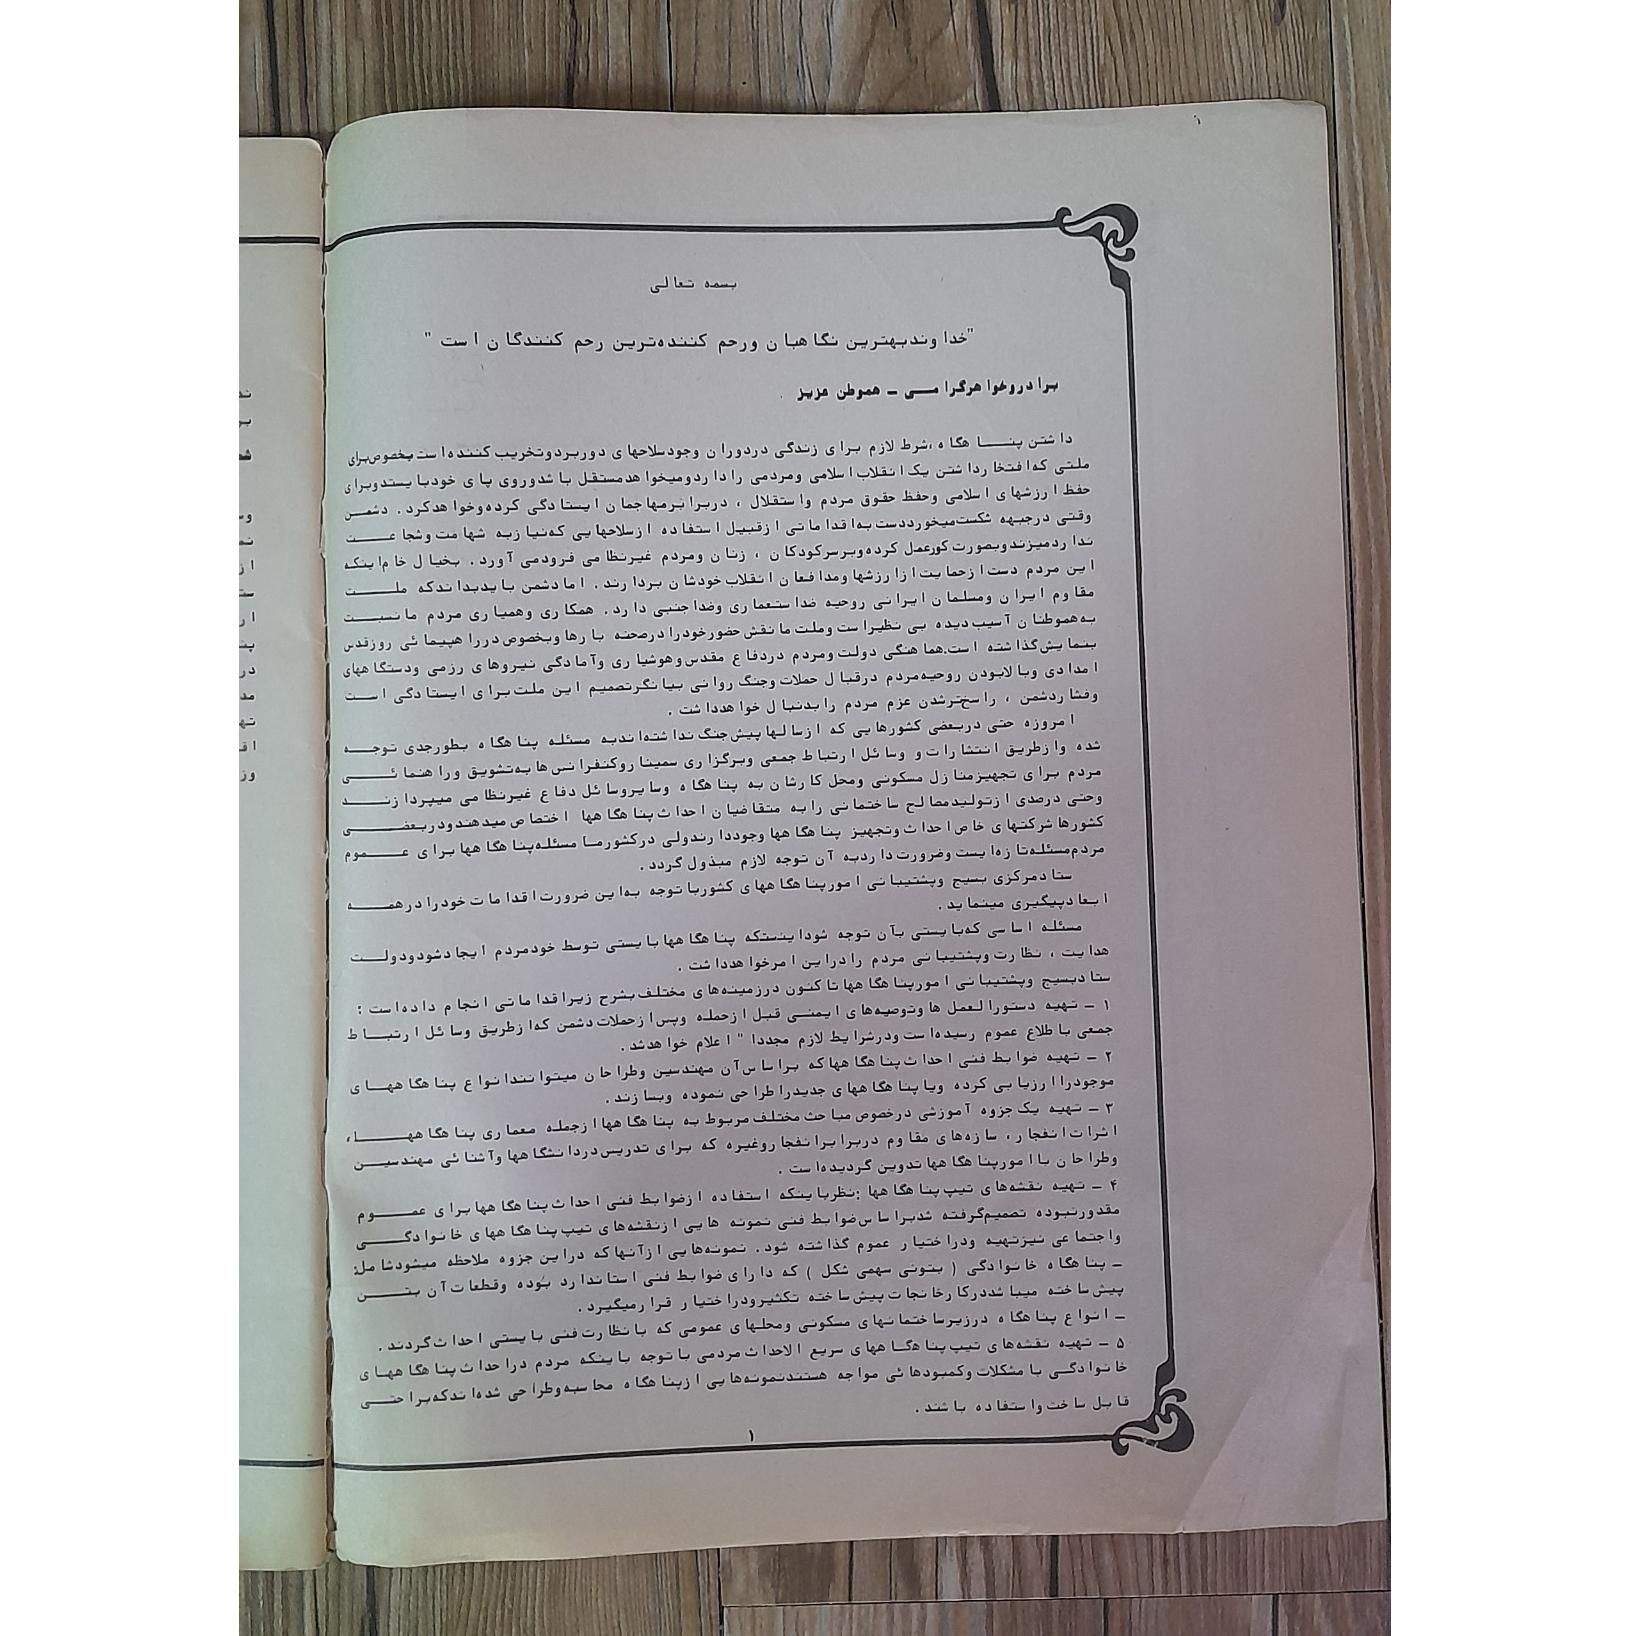 بسمه تعالی
"خداوند بهترین نگاهبان و رحم کننده‌ترین رحم کنندگان است "
برادر و خواهر گرامـــی ــ هموطن عزیز
داشتن پنــاهگاه ،شرط لازم برای زندگی در دوران وجود سلاحهای دوربرد و تخریب کننده است بخصوص برای
ملتی که افتخار داشتن یک انقلاب اسلامی و مردمی را دارد و میخواهد مستقل باشد و روی پای خود بایستد و برای
حفظ ارزشهای اسلامی و حفظ حقوق مردم و استقلال ، در برابر مهاجمان ایستادگی کرده و خواهد کرد . دشمـن
وقتی در جبهه شکست میخورد دست به اقداماتی از قبیل استفاده از سلاحهایی که نیاز به شهامت و شجاعـــت
ندارد میزند و بصورت کور عمل کرده و بر سر کودکان ، زنان و مردم غیر نظامی فرود می آورد . بخیال خام اینکه
این مردم دست از حمایت از ارزشها و مدافعان انقلاب خودشان بردارند . اما دشمن باید بداند که ملـــت
مقاوم ایران و مسلمان ایرانی روحیه ضد استعماری و ضد اجنبی دارد . همکاری و همیاری مردم ما نسبـــت
به هموطنان آسیب دیده بی نظیر است و ملت ما نقش حضور خود را در صحنه بارها و بخصوص در راهپیمائی روز قدس
بنمایش گذاشته است.هماهنگی دولت و مردم در دفاع مقدس و هوشیاری و آمادگی نیروهای رزمی و دستگاههای
امدادی و بالا بودن روحیه مردم در قبال حملات و جنگ روانی بیانگر تصمیم این ملت برای ایستادگی اســت
و فشار دشمن ، راسخ‌تر شدن عزم مردم را بدنبال خواهد داشت .
امروزه حتی در بعضی کشورهایی که از سالها پیش جنگ نداشته‌اند به مسئله پناهگاه بطور جدی توجـــه
شده و از طریق انتشارات و وسائل ارتباط جمعی و برگزاری سمینار و کنفرانس‌ها به تشویق و راهنمائــی
مردم برای تجهیز منازل مسکونی و محل کارشان به پناهگاه و سایر وسائل دفاع غیر نظامی میپردازنـــد
و حتی درصدی از تولید مصالح ساختمانی را به متقاضیان احداث پناهگاهها اختصاص میدهند و در بعضـــی
کشورها شرکتهای خاص احداث و تجهیز پناهگاهها وجود دارند ولی در کشور مــا مسئله پناهگاهها برای عــموم
مردم مسئله تازه‌ایست و ضرورت دارد به آن توجه لازم مبذول گردد .
ستاد مرکزی بسیج و پشتیبانی امور پناهگاههای کشور با توجه به این ضرورت اقدامات خود را در همـــه
ابعاد پیگیری مینماید .
مسئله اساسی که بایستی بآن توجه شود اینستکه پناهگاهها بایستی توسط خود مردم ایجاد شود و دولـــت
هدایت ، نظارت و پشتیبانی مردم را در این امر خواهد داشت .
ستاد بسیج و پشتیبانی امور پناهگاهها تاکنون در زمینه‌های مختلف بشرح زیر اقداماتی انجام داده است :
۱ ــ تهیه دستورالعمل ها و توصیه‌های ایمنی قبل از حمله و پس از حملات دشمن که از طریق وسائل ارتبــاط
جمعی باطلاع عموم رسیده است و در شرایط لازم مجددا " اعلام خواهد شد .
۲ ــ تهیه ضوابط فنی احداث پناهگاهها که براساس آن مهندسین و طراحان میتوانند انواع پناهگاههـــای
موجود را ارزیابی کرده و یا پناهگاههای جدید را طراحی نموده و بسازند .
۳ ــ تهیه یک جزوه آموزشی در خصوص مباحث مختلف مربوط به پناهگاهها از جمله معماری پناهگاههــــا،
اثرات انفجار، سازه‌های مقاوم در برابر انفجار و غیره که برای تدریس در دانشگاهها و آشنائی مهندسیــن
و طراحان با امور پناهگاهها تدوین گردیده است .
۴ ــ تهیه نقشه‌های تیپ پناهگاهها :نظر باینکه استفاده از ضوابط فنی احداث پناهگاهها برای عمـــوم
مقدور نبوده تصمیم گرفته شد براساس ضوابط فنی نمونه هایی از نقشه‌های تیپ پناهگاههای خانوادگـــی
و اجتماعی نیز تهیه و در اختیار عموم گذاشته شود . نمونه‌هایی از آنها که در این جزوه ملاحظه میشود شامل:
ــ پناهگاه خانوادگی ( بتونی سهمی شکل ) که دارای ضوابط فنی استاندارد بوده و قطعات آن بتـــن
پیش ساخته میباشد در کارخانجات پیش ساخته تکثیر و در اختیار قرار میگیرد .
ــ انواع پناهگاه در زیر ساختمانهای مسکونی و محلهای عمومی که با نظارت فنی بایستی احداث گردند .
۵ ــ تهیه نقشه‌های تیپ پناهگاههای سریع الاحداث مردمی با توجه باینکه مردم در احداث پناهگاههـای
خانوادگی با مشکلات و کمبودهائی مواجه هستند نمونه‌هایی از پناهگاه محاسبه و طراحی شده‌اند که براحتـــی
قابل ساخت و استفاده باشند .
۱